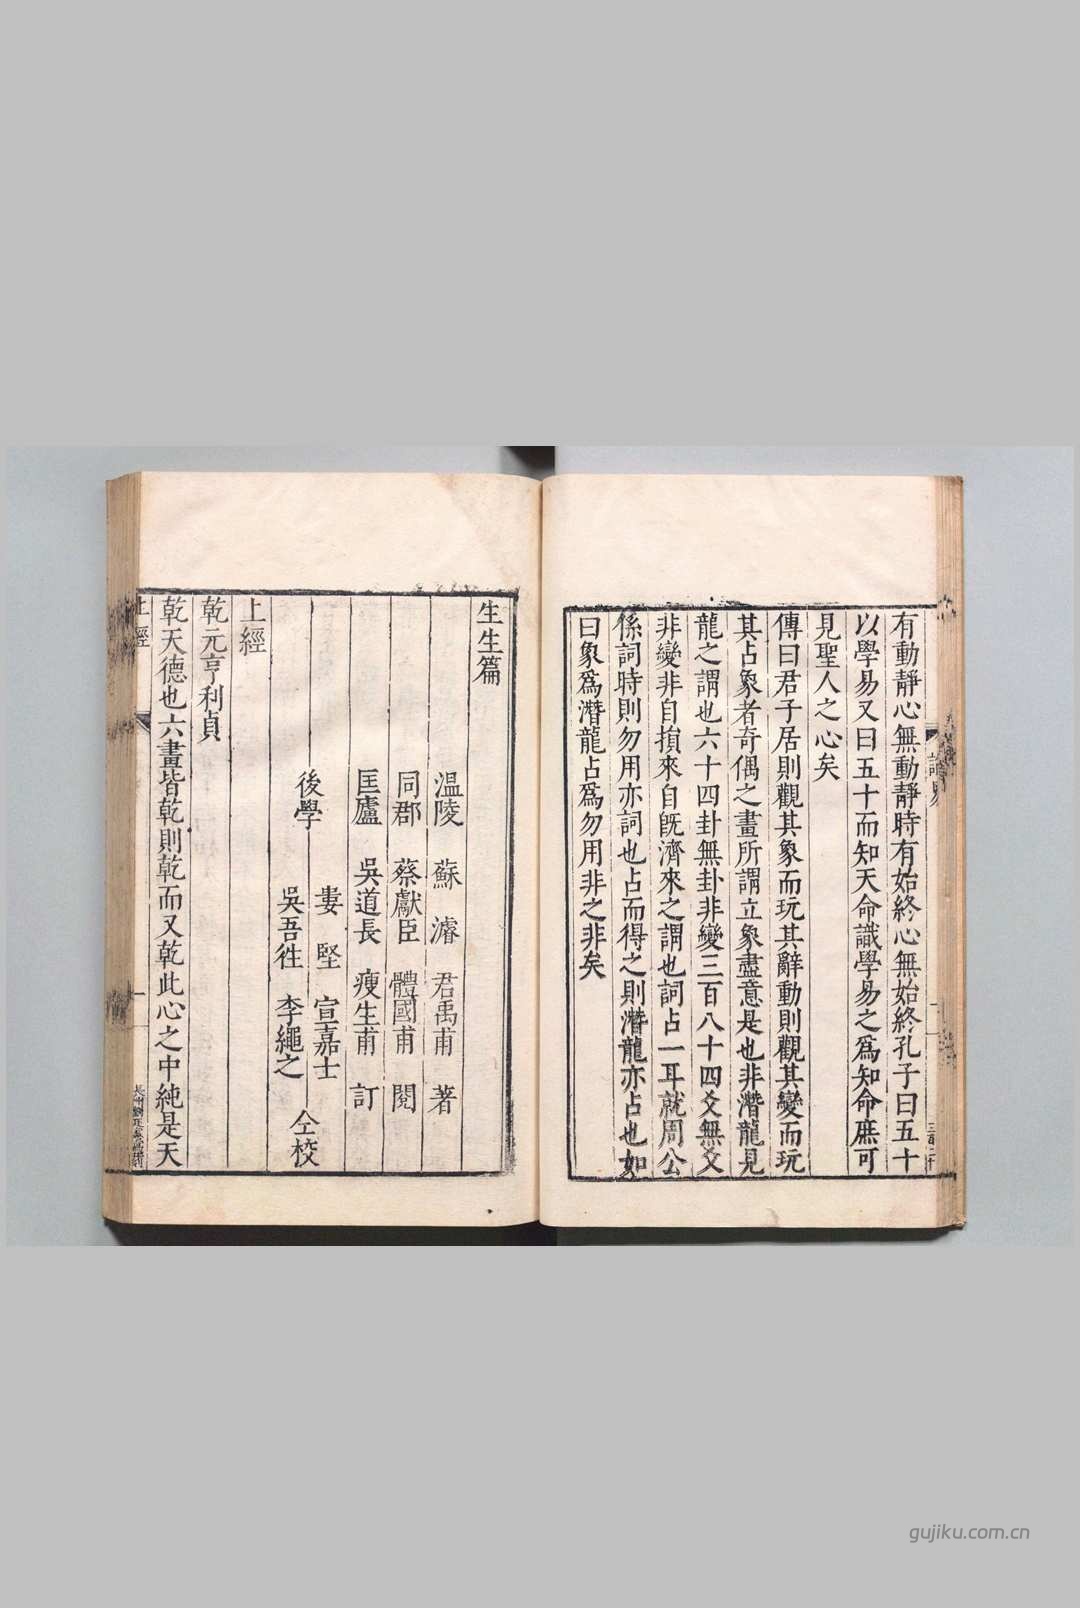 有動靜心無動靜時有始終心無始終孔子曰五十
以學易又曰五十而知天命識學易之爲知命庶可
見聖人之心矣
傳曰君子居則觀其象而玩其辭動則觀其變而玩
其占象者奇偶之畫所謂立象盡意是也非潛龍見
龍之謂也六十四卦無卦非變三百八十四爻無爻
非變非自損來自既濟來之謂也詞占一耳就周公
係詞時則勿用亦詞也占而得之則潛龍亦占也如
曰象爲潛龍占爲勿用非之非矣
生生篇
溫陵 蘇 濬 君禹甫 著
同郡 蔡獻臣 體國甫 閱
匡廬 吳道長 瘦生甫 訂
後學
婁 堅 宣嘉士
吳吾徃 李繩之
仝校
上經
乾元亨利貞
乾天德也六畫皆乾則乾而又乾此心之中純是天
上經
一
gujiku.com.cn